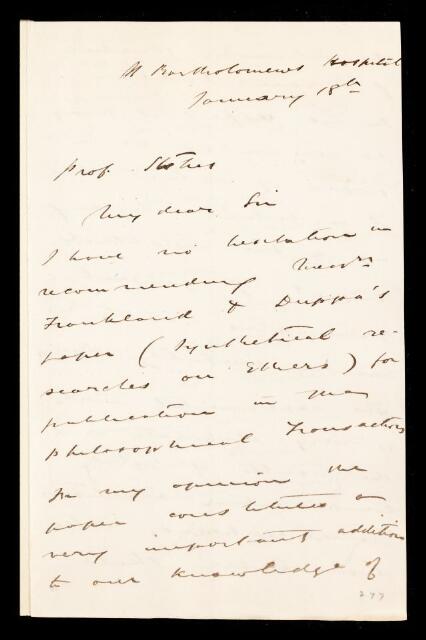 St Bartholomew's Hospital
January 18th
Prof. Stokes
My dear Sir
I have no hesitation in
recommending Messrs
Frankland & Duppa's
paper (Synthetical re-
searches on Ethers) for
publication in the
Philosophical Transactions
In my opinion the
paper constitutes a
very important addition
to our knowledge of
277